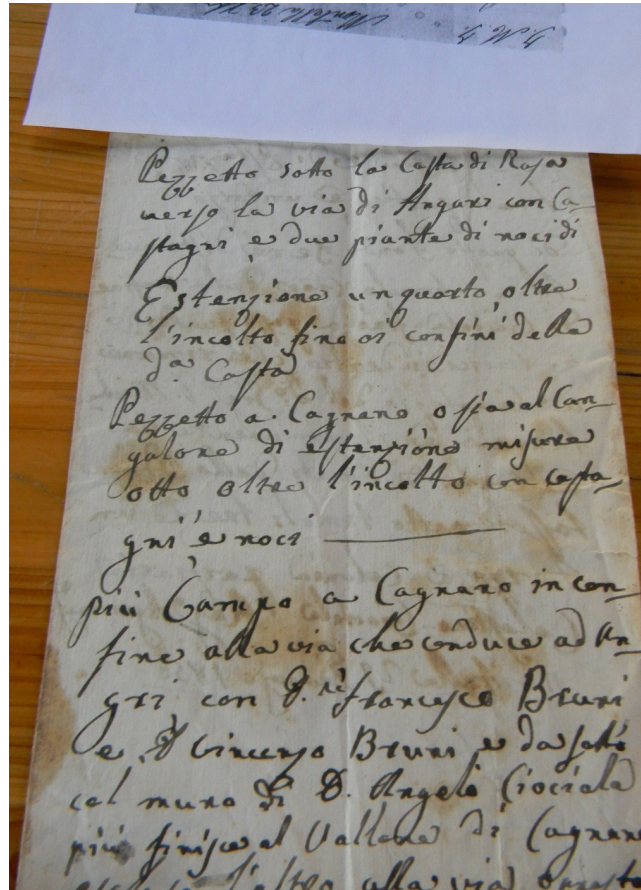 J. M. J.
Montella 23
Pezzetto sotto la Costa di Rosa
verso la via di Angari con Ca-
stagni e due piante di noci di
Estenzione un quarto, oltre
l'incolto fino ai confini della
da. Costa
Pezzetto a Cagnano o sia al Can-
galone di estenzione misure
otto oltre l'incolto con casta-
gni e noci
più Campo a Cagnano in con-
fine alla via che conduce ad An-
gri, con D.ni Francesco Bruni
e D. Vincenzo Bruni e da sotto
col muro di D. Angelo Ciociola
più finisce al Vallone di Cagnano
l'altro alla via